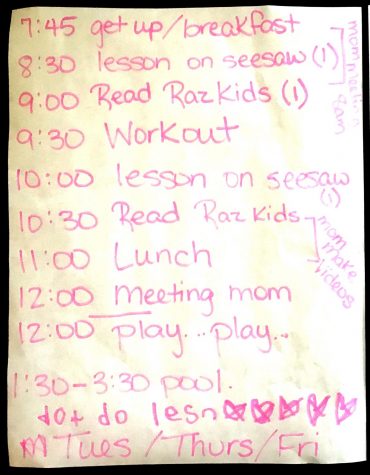 7:45 get up/breakfast
8:30 lesson on seesaw (1)
9:00 Read RazKids (1)
mom meeting 8am
9:30 Workout
10:00 lesson on seesaw (1)
10:30 Read RazKids
mom make videos
11:00 Lunch
12:00 meeting mom
12:00 play...play...
1:30-3:30 pool.
dot do lesn
M Tues/Thurs/Fri